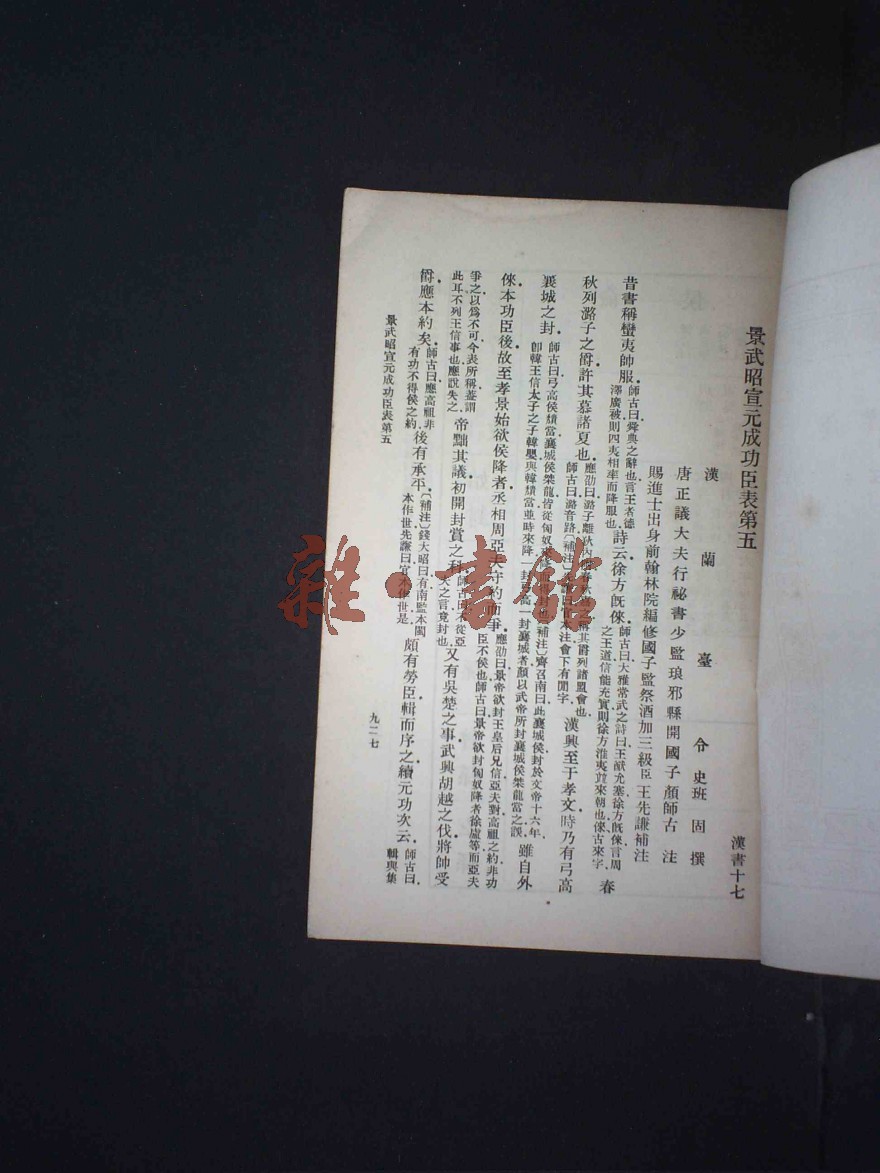 景武昭宣元成功臣表第五
漢書十七
漢蘭臺令史班固撰
唐正議大夫行祕書少監琅邪縣開國子顏師古注
賜進士出身前翰林院編修國子監祭酒加三級臣王先謙補注
昔書稱蠻夷帥服師古曰舜典之辭也言王者德澤廣被則四夷相率而降服也詩云徐方旣倈師古曰大雅常武之詩曰王猷允塞徐方旣倈言周之王道信能充實則徐方淮夷並來朝也倈古來字春
秋列潞子之爵許其慕諸夏也應劭曰潞子離狄內附春秋嘉之稱其爵列諸盟會也師古曰潞音路〔補注〕曰官本注會下有閒字漢興至于孝文時乃有弓高
襄城之封師古曰弓高侯穨當襄城侯桀龍皆從匈奴來降而得封也〔補注〕齊召南曰此襄城侯封於文帝十六年卽韓王信太子之子韓嬰與韓穨當並時來降一封弓高一封襄城者顏以武帝所封襄城侯桀龍當之誤雖自外
倈本功臣後故至孝景始欲侯降者丞相周亞夫守約而爭應劭曰景帝欲封王皇后兄信亞夫對高祖之約非功臣不侯也師古曰景帝欲封匈奴降者徐盧等而亞夫
爭之以爲不可今表所稱蓋謂此耳不列王信事也應說失之帝黜其議初開封賞之科師古曰不從亞夫之言竟封也又有吳楚之事武興胡越之伐將帥受
爵應本約矣師古曰應高祖非有功不得侯之約後有承平〔補注〕錢大昭曰有南監本閩本作世先謙曰官本作世是頗有勞臣輯而序之續元功次云師古曰輯與集
景武昭宣元成功臣表第五
九二七
雜·書館